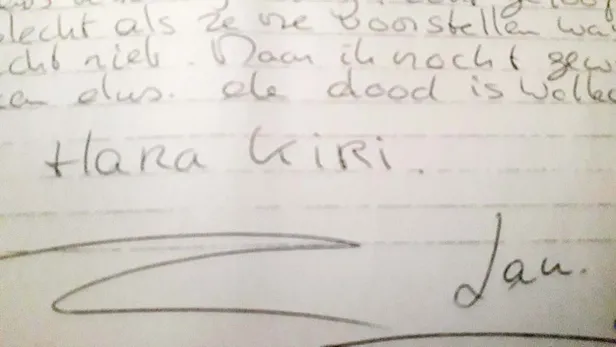 lecht als ze me voorstellen wa
cht niet. Maar ik nocht gew
en dus. de dood is
HARA KIRI.
Jan.